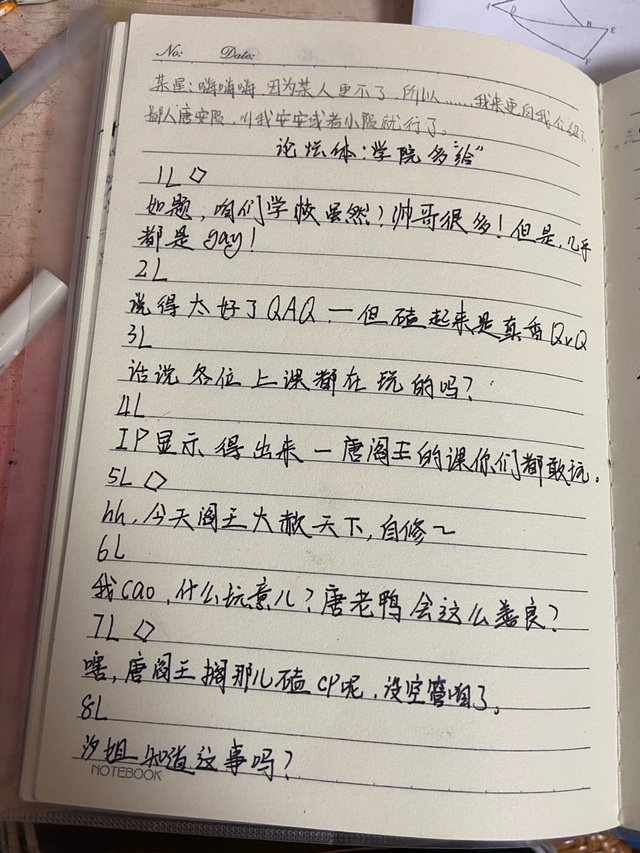 No:   Date:
某星:嗨嗨嗨 因为某人更不了,所以……我来更自我介绍下,
鄙人唐安限,叫我安安或者小限就行了。
论坛体:学院多"给"
1L ◇
如题,咱们学校虽然?帅哥很多!但是,几乎
都是gay!
2L
说得太好了QAQ.一但磕起来是真香QvQ
3L
话说各位上课都在玩的吗?
4L
IP显示得出来一唐阎王的课你们都敢玩。
5L ◇
hh,今天阎王大赦天下,自修~
6L
我cao,什么玩意儿?唐老鸭会这么善良?
7L ◇
嗐,唐阎王搁那儿磕cp呢,没空管咱了。
8L
汐姐知道这事吗?
NOTEBOOK